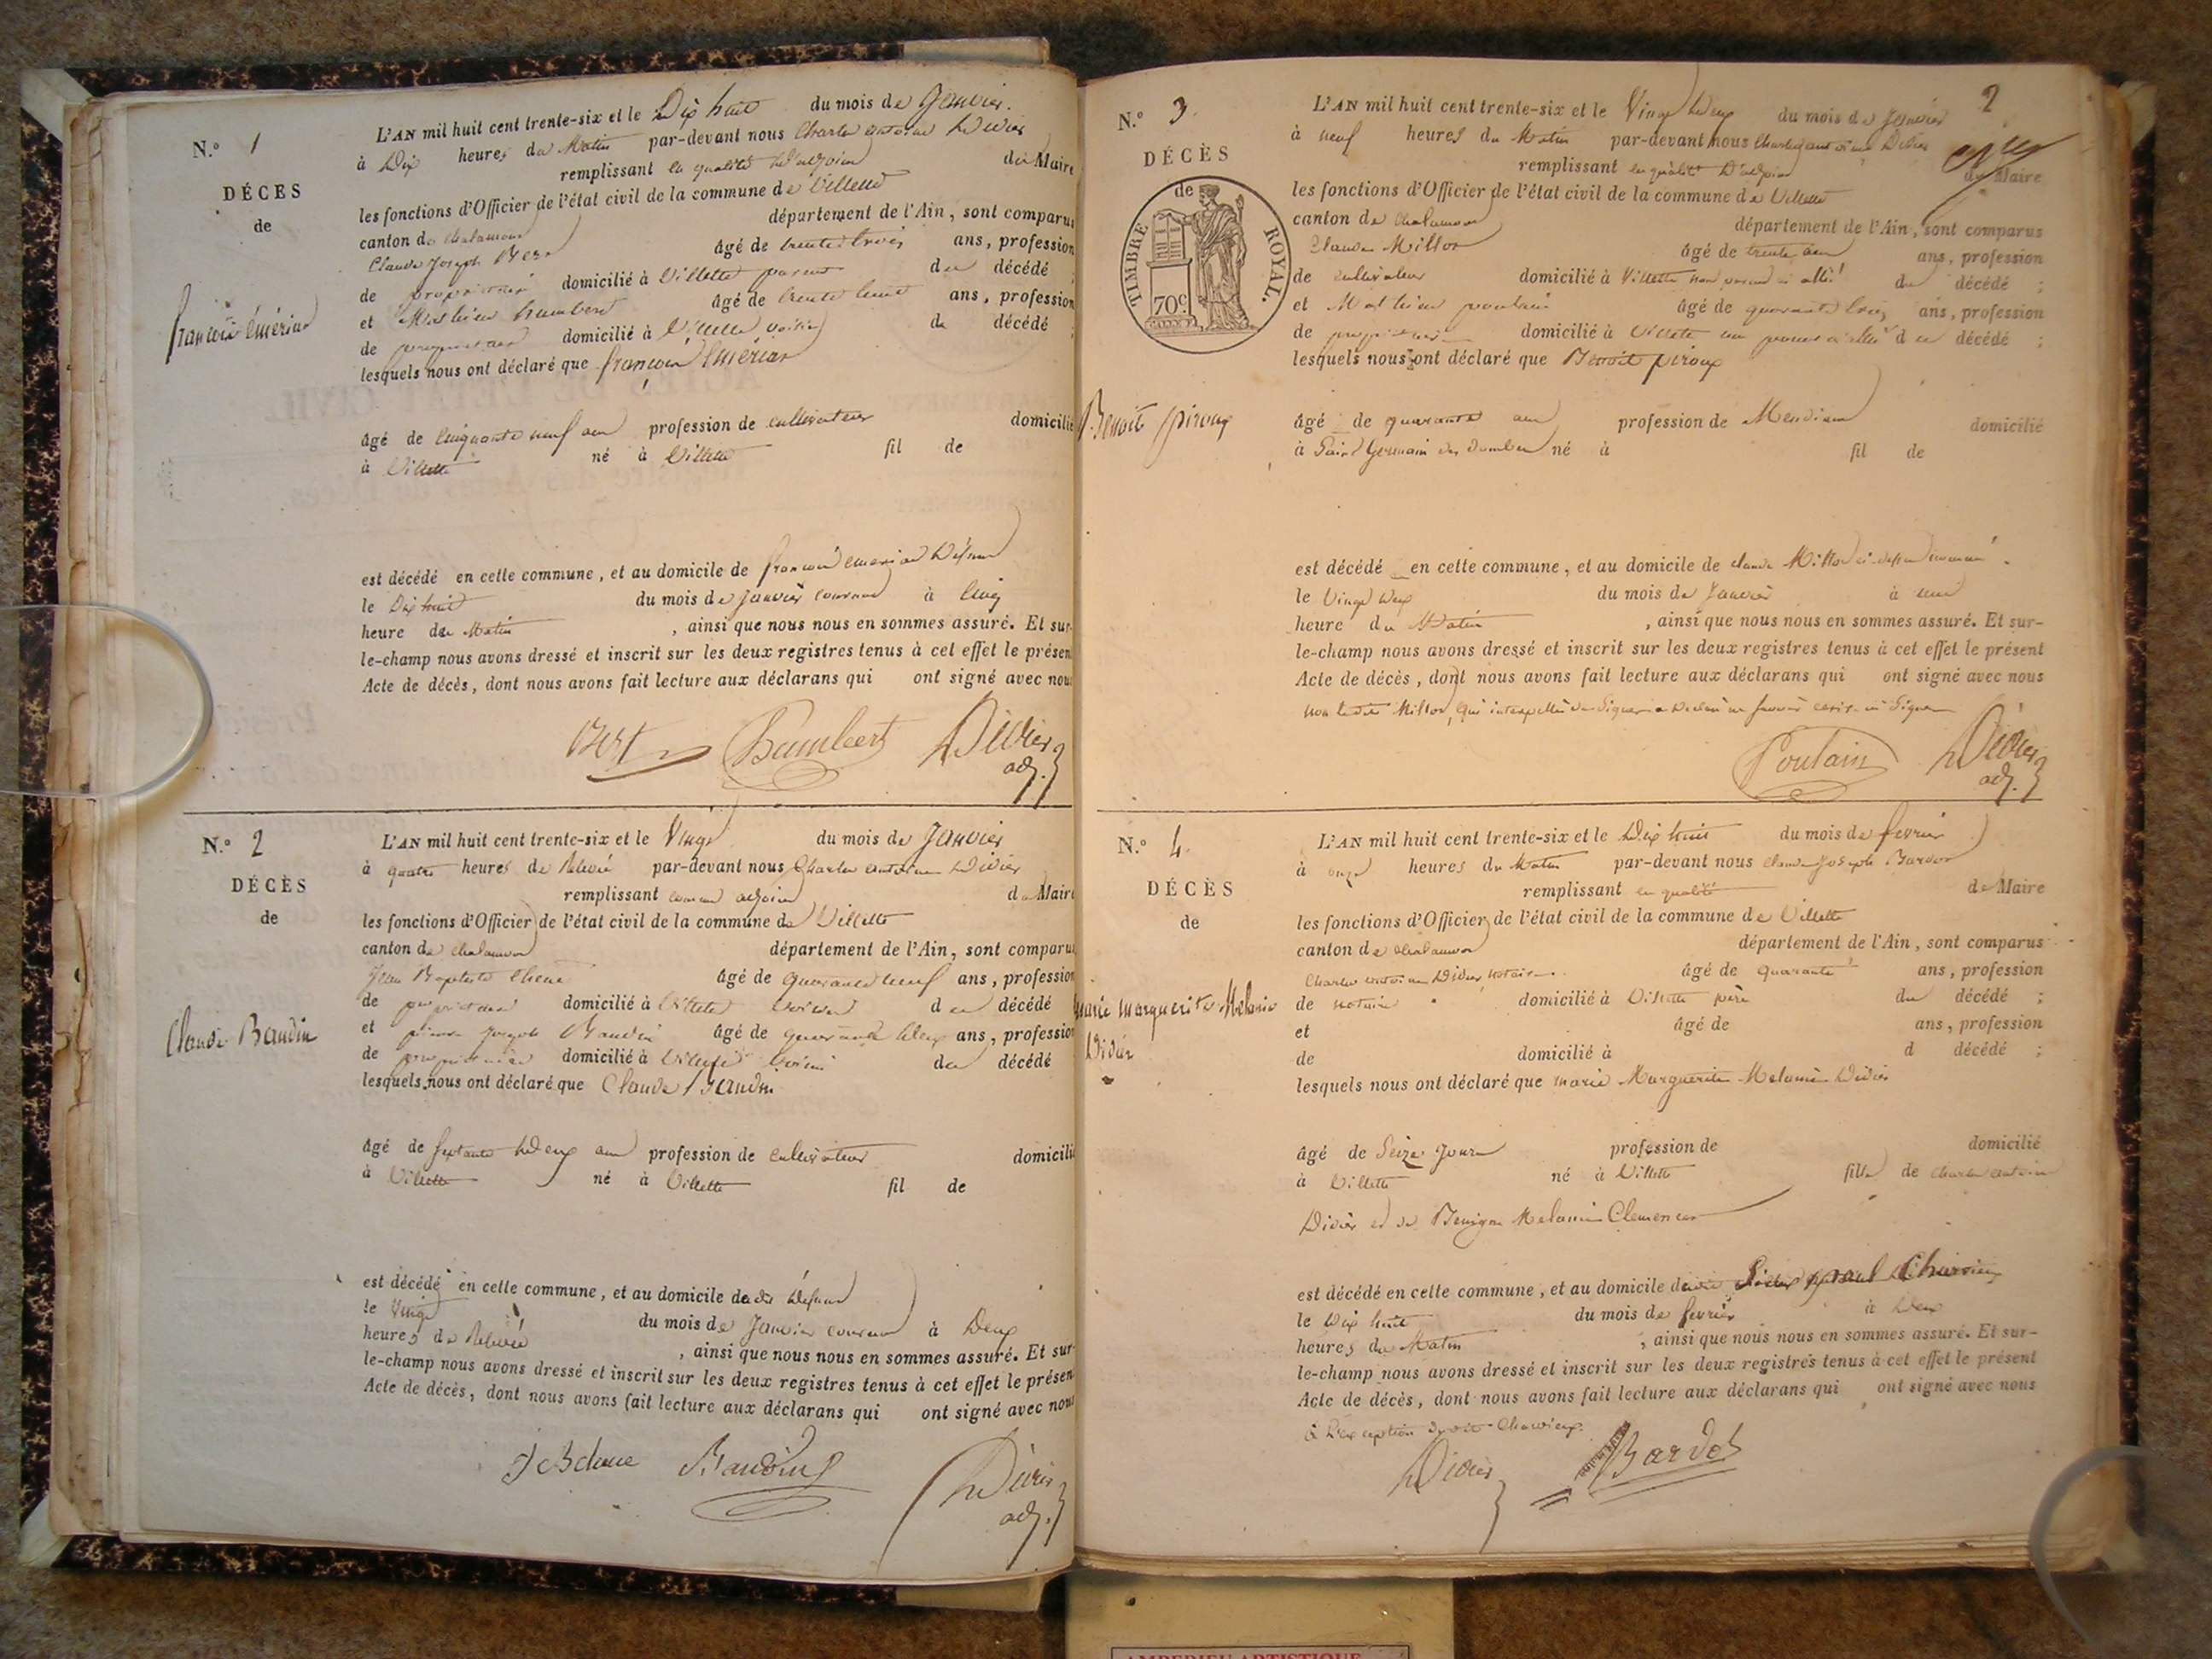 N.º 1
DÉCES
de
françois émérian
L'AN mil huit cent trente-six et le Dix huit du mois de Janvier.
à Dix heures du Matin par-devant nous Charles antoine Didier
remplissant en qualité d'adjoint du Maire
les fonctions d'Officier de l'état civil de la commune de Villette
canton de chalamont département de l'Ain, sont comparus
Claude Joseph âgé de trente trois ans, profession
de propriétaire domicilié à Villette parent du décédé ;
et Mathieu humbert âgé de trente huit ans, profession
de propriétaire domicilié à Villette voisin du décédé ;
lesquels nous ont déclaré que françois émérian
âgé de cinquante neuf ans profession de cultivateur domicilié
à Villette né à Villette fil de
est décédé en cette commune, et au domicile de françois émérian défunt
le Dix huit du mois de Janvier courant à cinq
heure du Matin , ainsi que nous nous en sommes assuré. Et sur-
le-champ nous avons dressé et inscrit sur les deux registres tenus à cet effet le présen
Acte de décès, dont nous avons fait lecture aux déclarans qui ont signé avec nous
Didier
adj.
N.º 2
DÉCÈS
de
Claude Baudin
L'AN mil huit cent trente-six et le Vingt du mois de Janvier
à quatre heures de Relevée par-devant nous Charles antoine Didier
remplissant comme adjoint du Maire
les fonctions d'Officier de l'état civil de la commune de Villette
canton de chalamont département de l'Ain, sont comparus
Jean Baptiste chene âgé de quarante neuf ans, profession
de propriétaire domicilié à Villette voisin du décédé
et pierre Joseph Baudin âgé de quarante deux ans, profession
de propriétaire domicilié à Villette voisin du décédé
lesquels nous ont déclaré que Claude Baudin
âgé de septante deux ans profession de cultivateur domicilié
à Villette né à Villette fil de
est décédé en cette commune, et au domicile de dit défunt
le Vingt du mois de Janvier courant à Deux
heures de Relevée , ainsi que nous nous en sommes assuré. Et sur-
le-champ nous avons dressé et inscrit sur les deux registres tenus à cet effet le présen
Acte de décès, dont nous avons fait lecture aux déclarans qui ont signé avec nous
Baudin Didier
adj.
2
N.º 3
DÉCÈS
de
TIMBRE ROYAL.
70 c.
Benoit piroux
L'AN mil huit cent trente-six et le Vingt deux du mois de Janvier
à neuf heures du Matin par-devant nous Charles antoine Didier
remplissant en qualité d'adjoint du Maire
les fonctions d'Officier de l'état civil de la commune de Villette
canton de chalamont département de l'Ain, sont comparus
Claude Millot âgé de trente ans, profession
de cultivateur domicilié à Villette non parent ni allié du décédé ;
et Mathieu poulain âgé de quarante cinq ans, profession
de propriétaire domicilié à Villette non parent ni allié du décédé ;
lesquels nous ont déclaré que Benoit piroux
âgé de quarante ans profession de Mendiant domicilié
à Saint Germain des dombes né à fil de
est décédé en cette commune, et au domicile de claude Millot ci-dessus nommé.
le Vingt deux du mois de Janvier à une
heure du Matin , ainsi que nous nous en sommes assuré. Et sur-
le-champ nous avons dressé et inscrit sur les deux registres tenus à cet effet le présent
Acte de décès, dont nous avons fait lecture aux déclarans qui ont signé avec nous
non ledit Millot, qui interpellé de signer a déclaré ne savoir écrire ni signer
Poulain Didier
adj.
N.º 4
DÉCÈS
de
marie marguerite Melanie
Didier
L'AN mil huit cent trente-six et le Dix huit du mois de fevrier
à onze heures du Matin par-devant nous claude Joseph Bardet
remplissant en qualité de Maire
les fonctions d'Officier de l'état civil de la commune de Villette
canton de chalamont département de l'Ain, sont comparus
Charles antoine Didier, notaire âgé de quarante ans, profession
de notaire domicilié à Villette père du décédé ;
et âgé de ans, profession
de domicilié à d décédé ;
lesquels nous ont déclaré que marie Marguerite Melanie Didier
âgé de Seize Jours profession de domicilié
à Villette né à Villette fille de charles antoine
Didier et de Benigne Melanie Clemence
est décédé en cette commune, et au domicile de
le Dix huit du mois de fevrier à Deux
heures du Matin , ainsi que nous nous en sommes assuré. Et sur-
le-champ nous avons dressé et inscrit sur les deux registres tenus à cet effet le présent
Acte de décès, dont nous avons fait lecture aux déclarans qui ont signé avec nous
à l'exception
Didier Bardet
AMBERIEU ARTISTIQUE